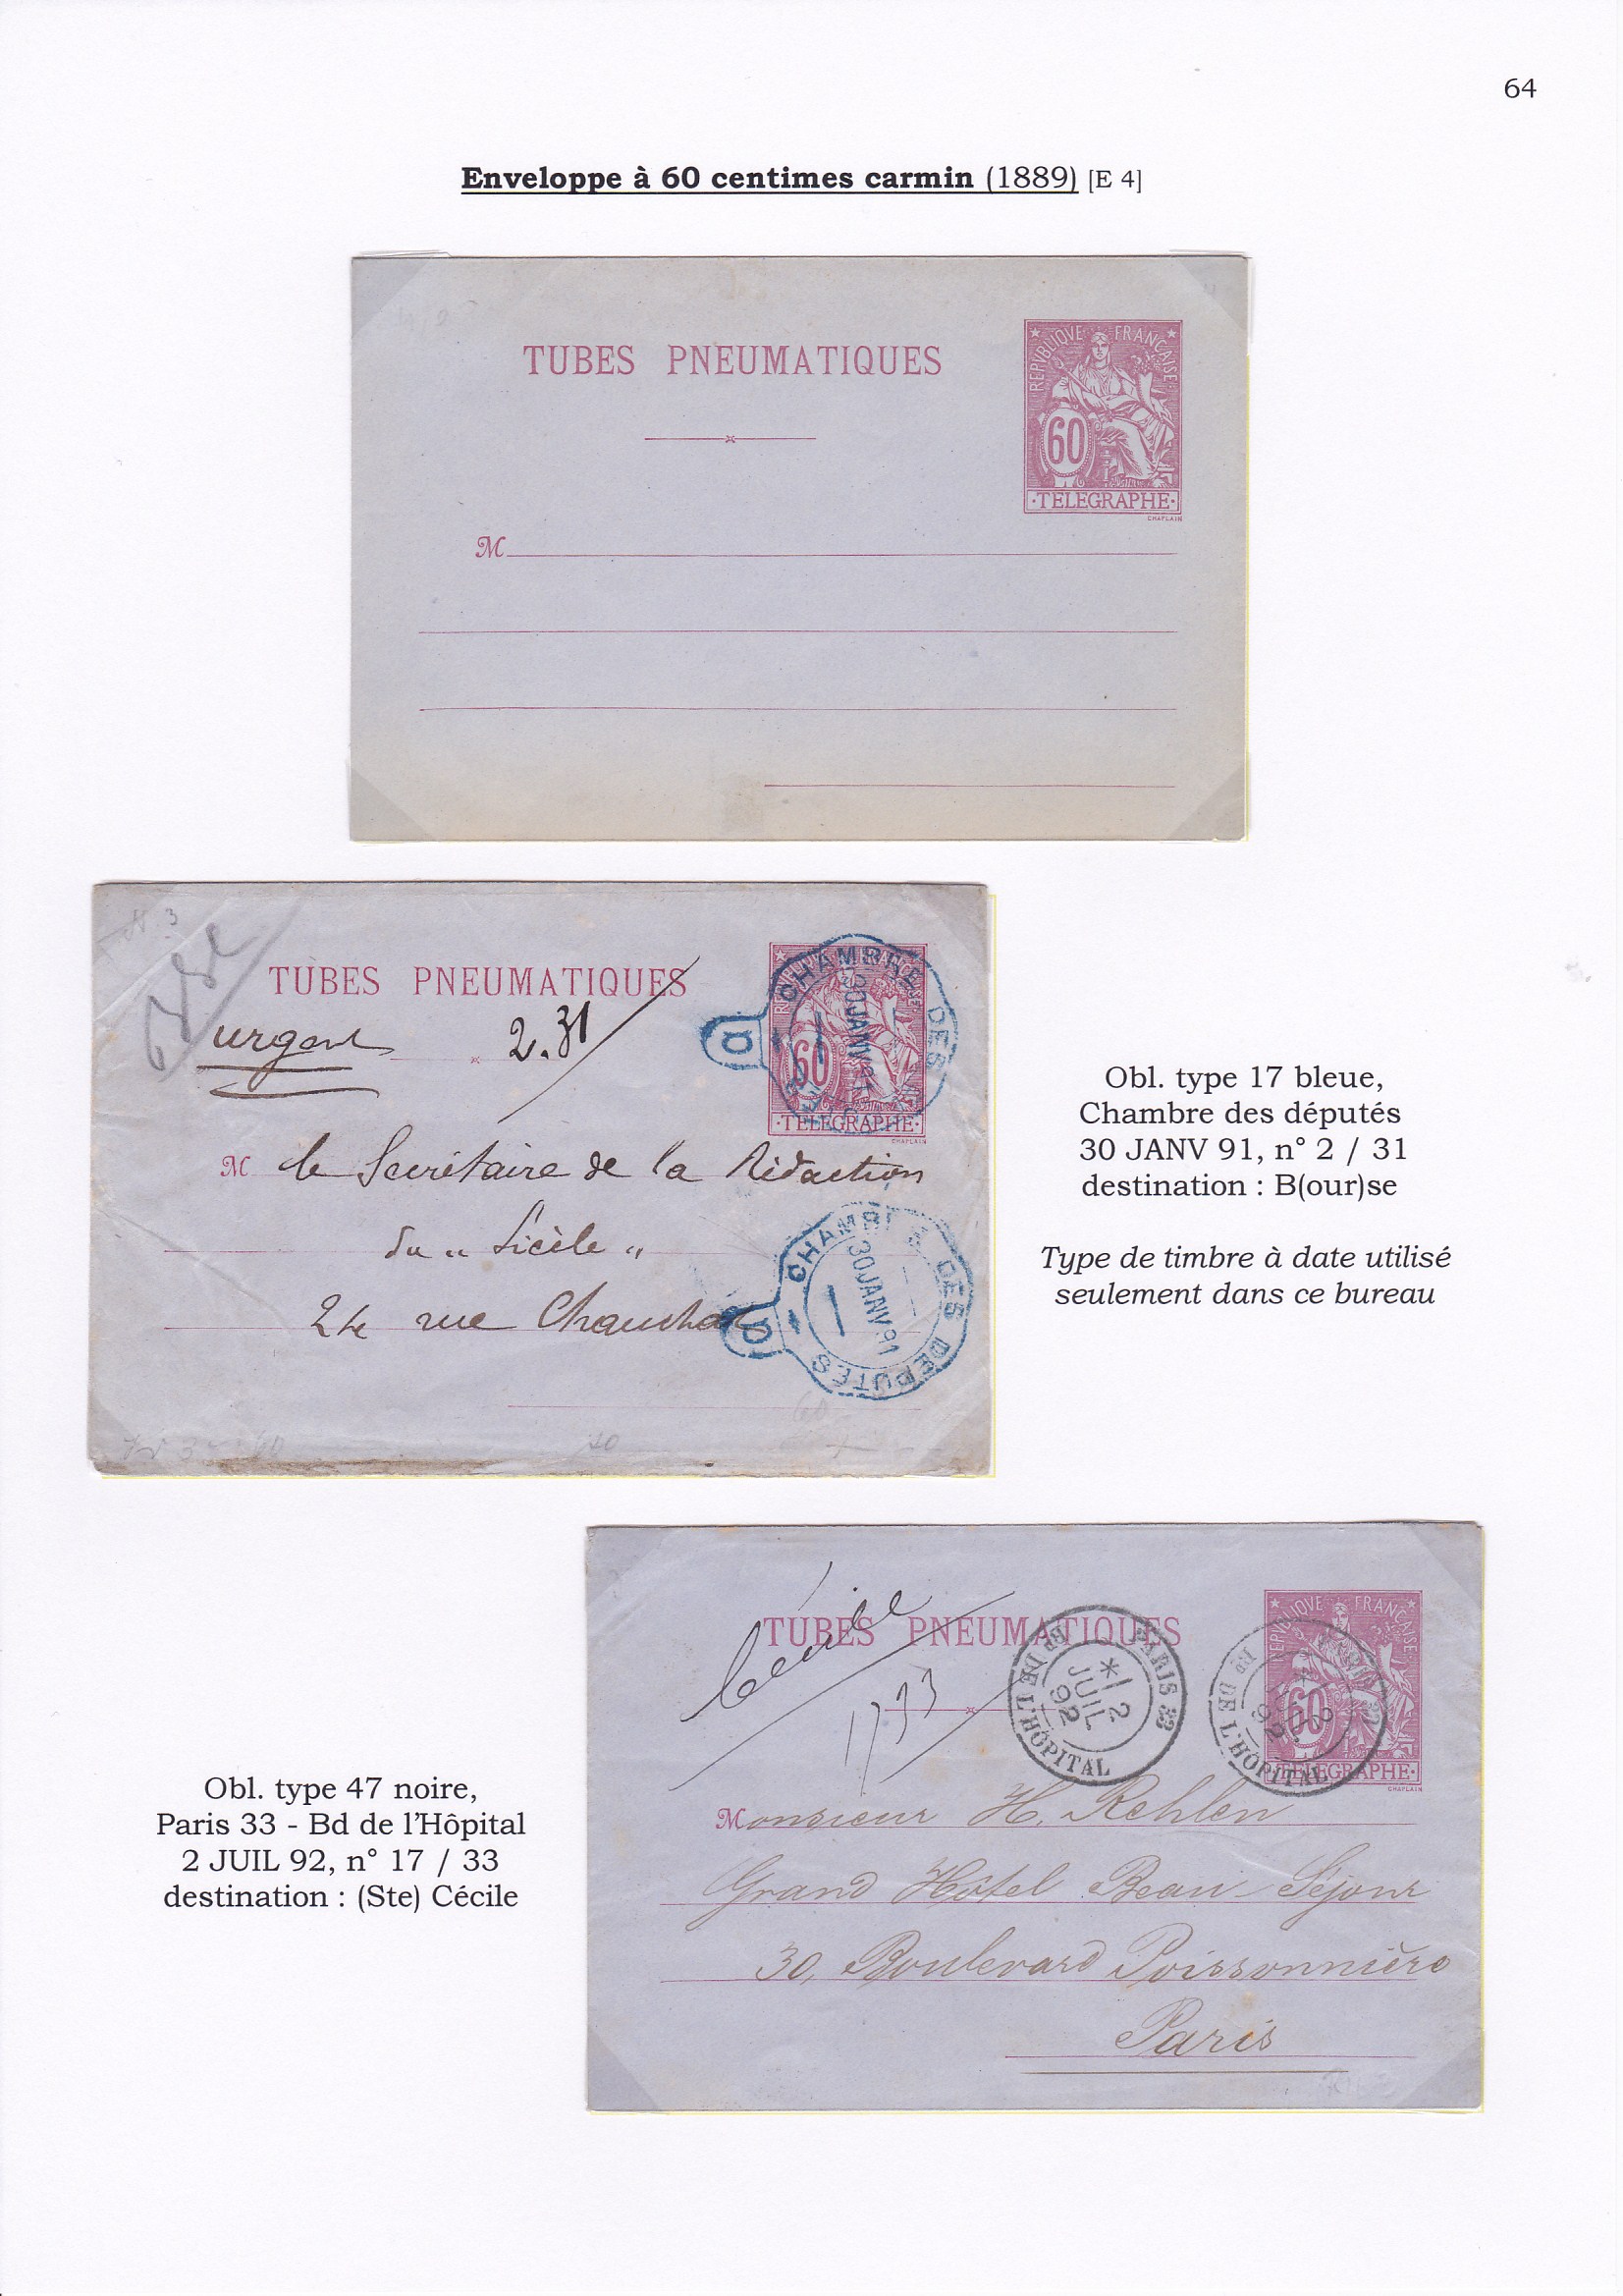 64
Enveloppe à 60 centimes carmin (1889) [E 4]
TUBES PNEUMATIQUES
REPUBLIQUE FRANCAISE
60
·TELEGRAPHE·
CHAPLAIN
M
TUBES PNEUMATIQUES
urgent
2.31
60
·TELEGRAPHE·
CHAPLAIN
CHAMBRE DES
30 JANV 91
M le Secrétaire de la Rédaction
du „ Siècle „
24 rue Chauchat
CHAMBRE DES DEPUTÉS
30 JANV 91
Obl. type 17 bleue,
Chambre des députés
30 JANV 91, n° 2 / 31
destination : B(our)se
Type de timbre à date utilisé
seulement dans ce bureau
TUBES PNEUMATIQUES
Cécile
17/33
PARIS 33
2
JUIL
92
Bd DE L'HÔPITAL
REPUBLIQUE FRANCAISE
60
Bd DE L'HÔPITAL
TELEGRAPHE·
CHAPLAIN
Monsieur H. Rehlen
Grand Hôtel Beau-Séjour
30, Boulevard Poissonnière
Paris
Obl. type 47 noire,
Paris 33 - Bd de l'Hôpital
2 JUIL 92, n° 17 / 33
destination : (Ste) Cécile